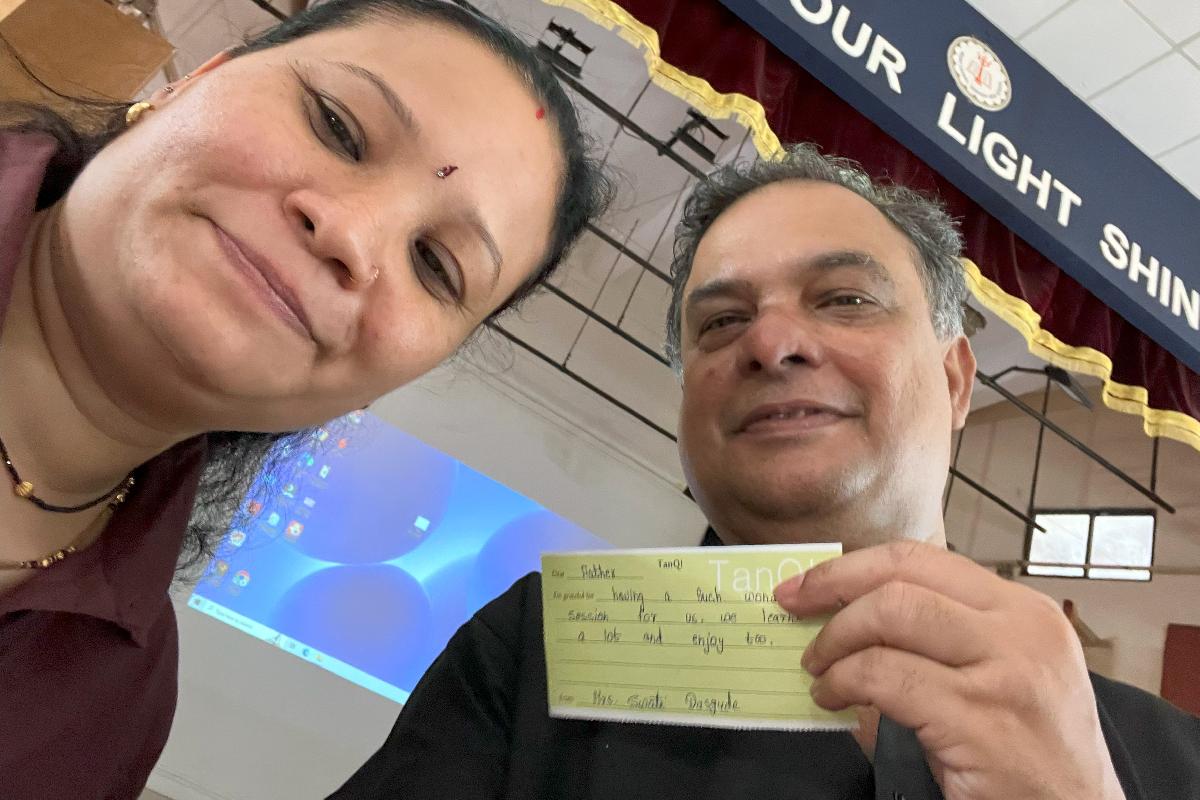 OUR LIGHT SHIN
TanQ!
TanQ!
Dear Father
I'm grateful for having a such wond
session for us. we learn
a lots and enjoy too.
From Mrs. Swati Dasgude